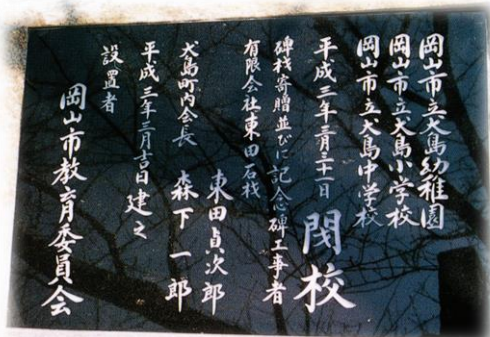 岡山市立犬島幼稚園
岡山市立犬島小学校
岡山市立犬島中学校
平成三年三月三十一日 閉校
碑材寄贈並びに記念碑工事者
有限会社東田石材
東田貞次郎
犬島町内会長 森下一郎
平成三年三月吉日建之
設置者
岡山市教育委員会